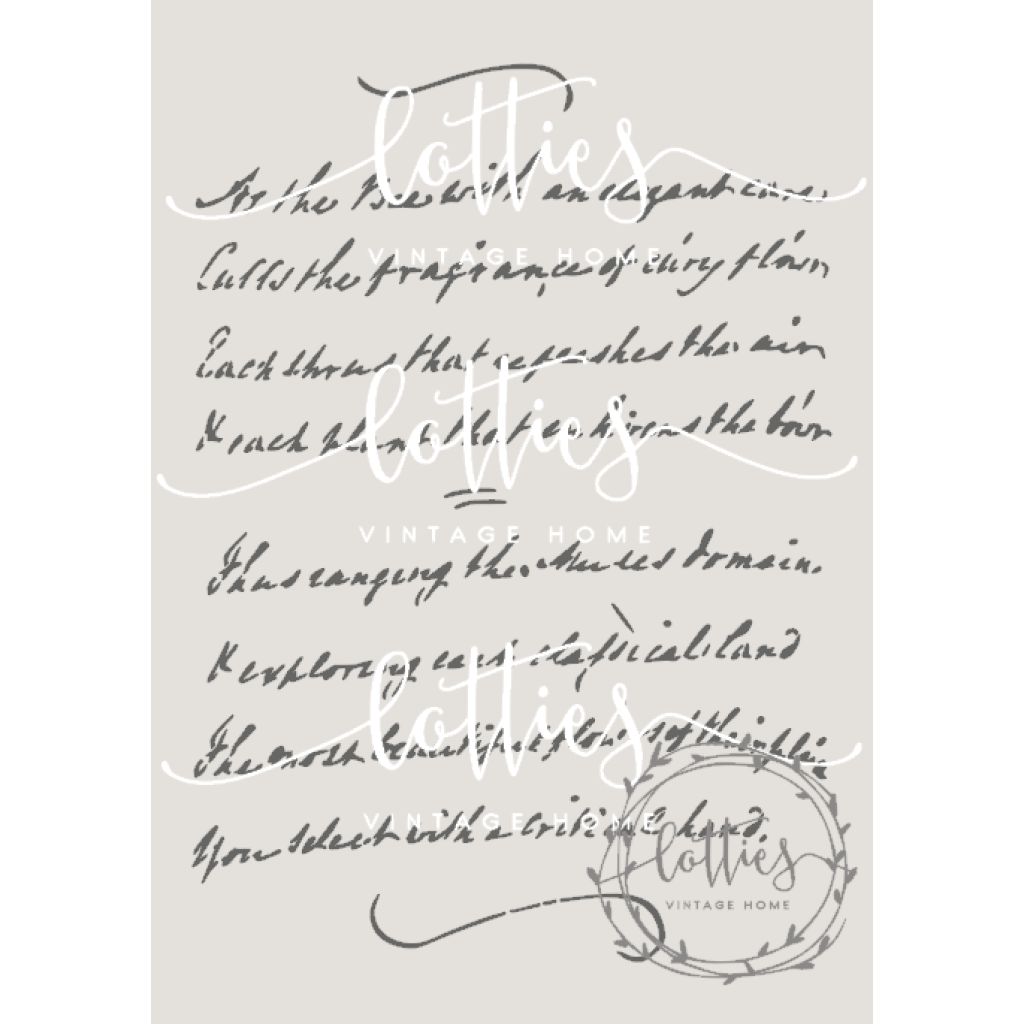 lotties
As the Bee with an elegant care
VINTAGE HOME
Culls the fragrance of ev'ry flow'r
Each shrub that refreshes the air
& each plant that enlivens the bow'r
lotties
VINTAGE HOME
Thus ranging the Muses domain.
& exploring each classical land
lotties
The most beautiful flow's of
You select with a critic's hand.
VINTAGE HOME
lotties
VINTAGE HOME